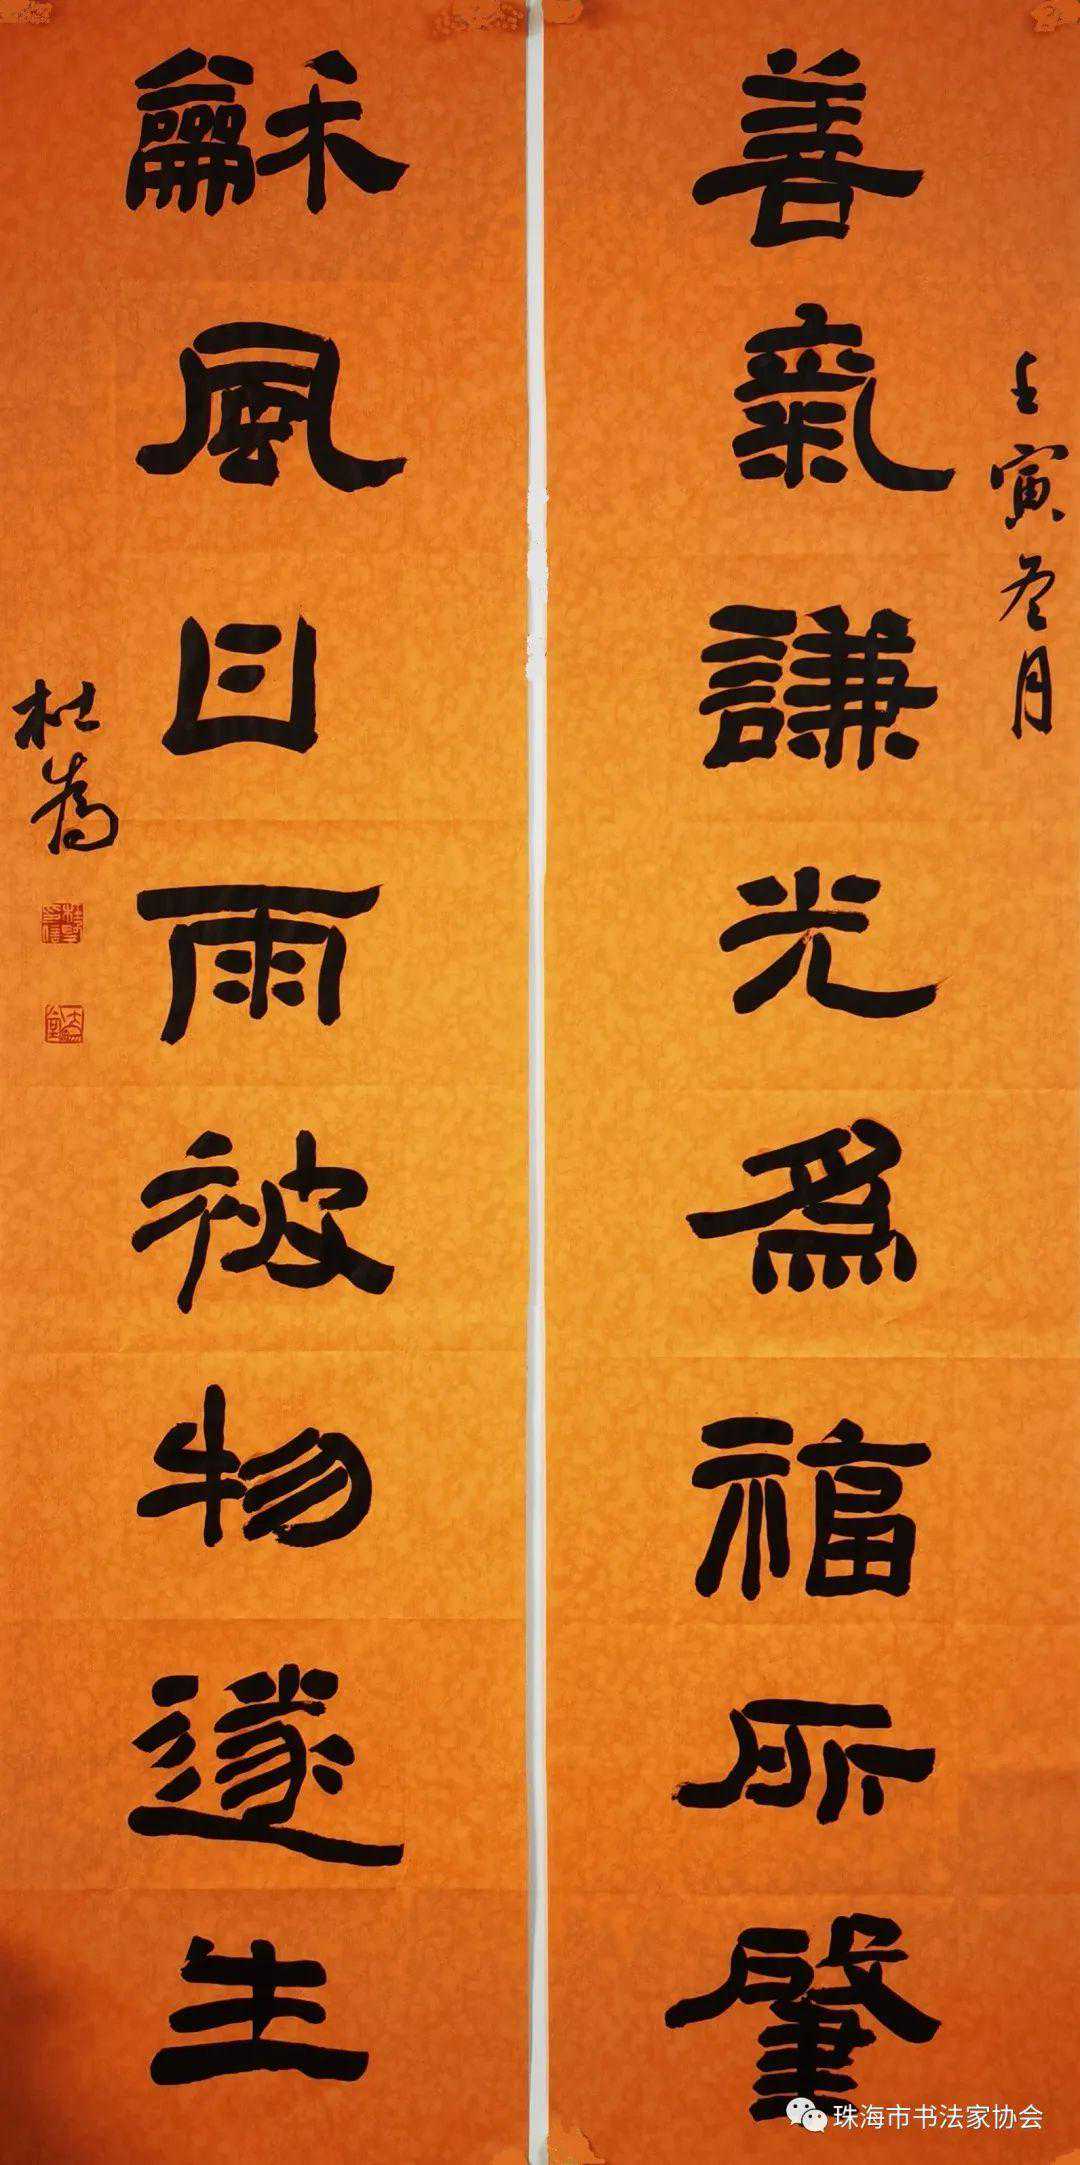 善氣謙光為福所肇
壬寅冬月
龢風日雨被物遂生
杜為
珠海市书法家协会